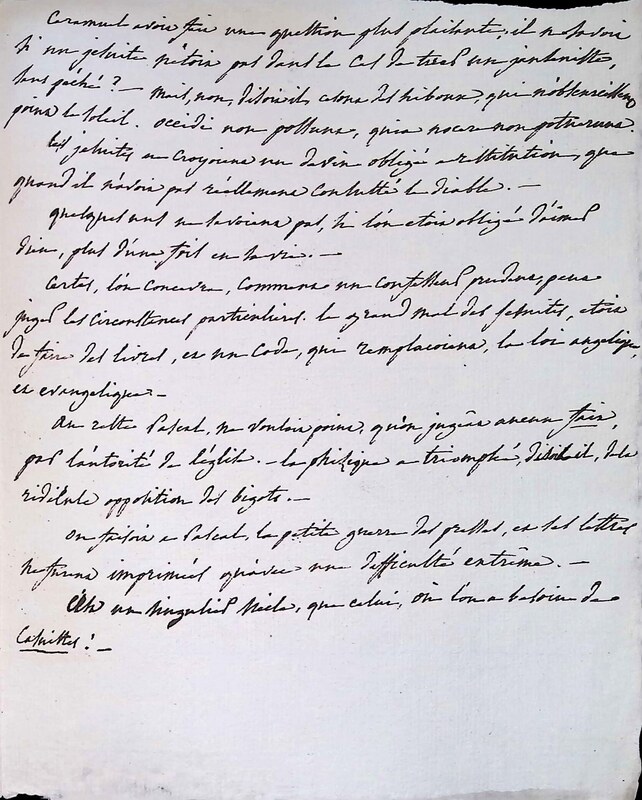 Caramuel avoit fait une question plus plaisante, il ne savoit
si un jesuite n'étoit pas dans le cas de tuer un janseniste,
sans péché? — mais, non, disoit-il, car ce sont des hiboux, qui n'obscurcissent
point le soleil. occidi non possunt, quia nocere non potuerunt.
les jesuites ne croyoient un devin obligé a restitution, que
quand il n'avoit pas réellement consulté le diable. —
quelques uns ne savoient pas, si l'on étoit obligé d'aimer
dieu, plus d'une fois en sa vie. —
Certes, l'on concevra, comment un confesseur prudent, peut
juger les circonstances particulieres. le grand mal des jesuites, étoit
de faire des livres, et un code, qui remplaçoient, la loi angelique,
et evangelique —
Au reste Pascal, ne vouloit point, qu'on jugeât aucun fait,
par l'autorité de l'église. — la phisique a triomphé, disoit-il, de la
ridicule opposition des bigots. —
On faisoit a Pascal, la petite guerre des presses, et ses lettres
ne furent imprimées qu'avec une difficulté entrême. —
C'est un singulier siècle, que celui, où l'on a besoin de
Casuistes! —